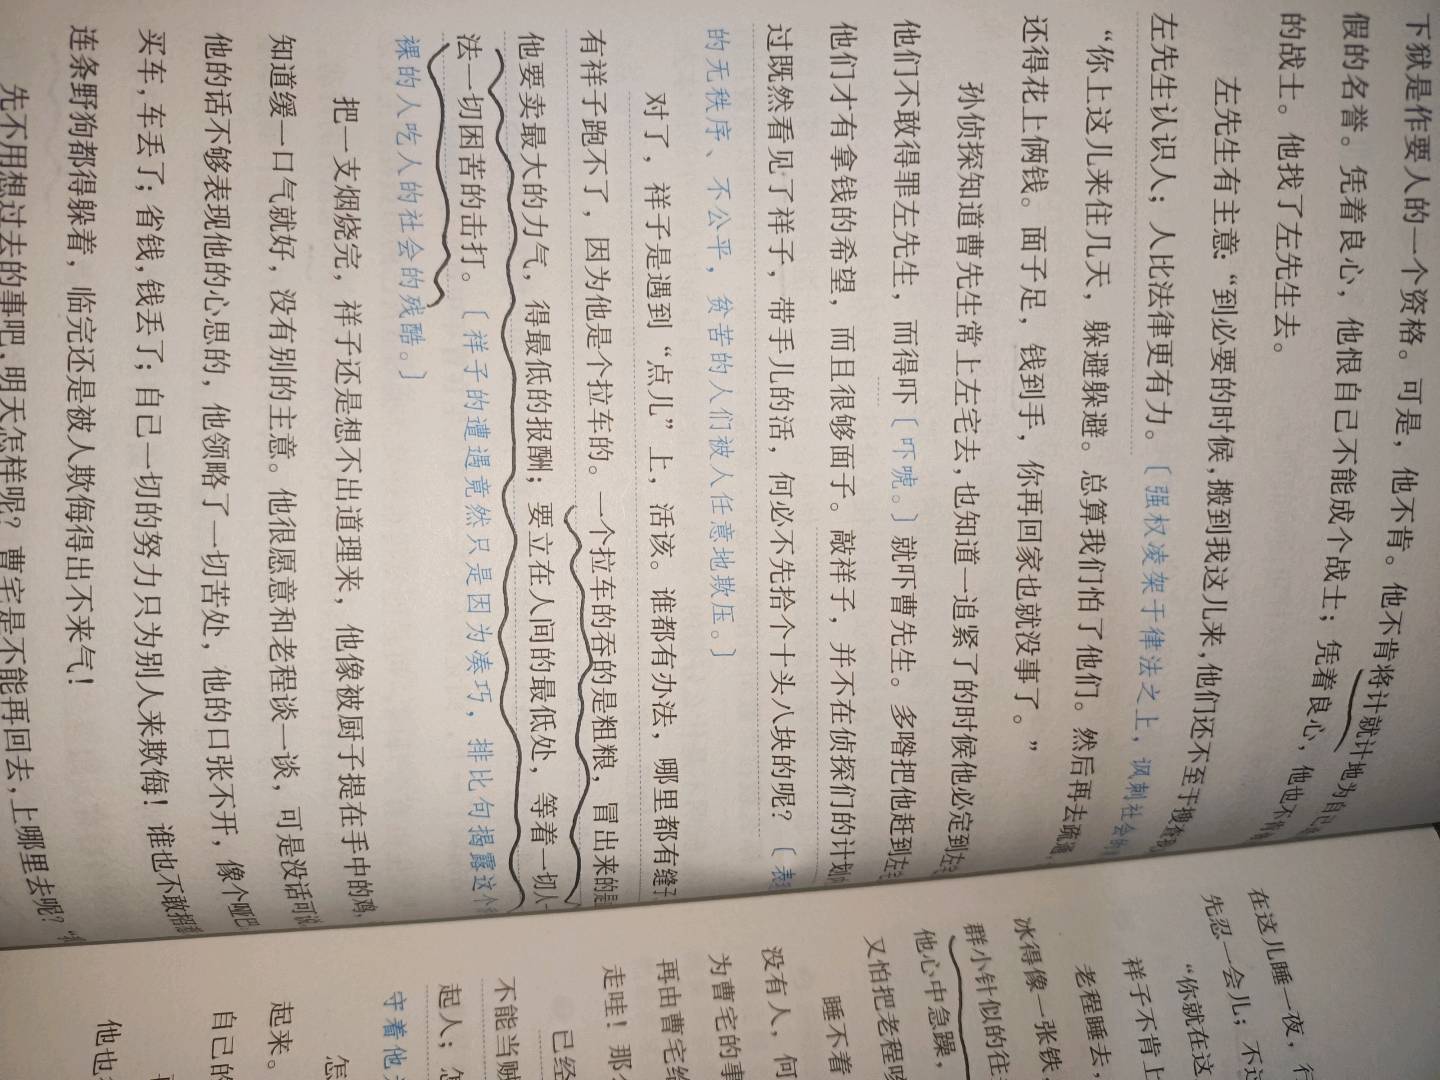 下狱是作要人的一个资格。可是，他不肯。他不肯将计就计地为自己
假的名誉。凭着良心，他恨自己不能成个战士；凭着良心，他也不肯
的战士。他找了左先生去。
左先生有主意：“到必要的时候，搬到我这儿来，他们还不至于搜查我
左先生认识人；人比法律更有力。〔强权凌架于律法之上，讽刺社会的
“你上这儿来住几天，躲避躲避。总算我们怕了他们。然后再去疏通，
还得花上俩钱。面子足，钱到手，你再回家也就没事了。”
孙侦探知道曹先生常上左宅去，也知道一追紧了的时候他必定到左
他们不敢得罪左先生，而得吓〔吓唬。〕就吓曹先生。多咱把他赶到左
他们才有拿钱的希望，而且很够面子。敲祥子，并不在侦探们的计划
过既然看见了祥子，带手儿的活，何必不先拾个十头八块的呢？〔表
的无秩序、不公平，贫苦的人们被人任意地欺压。〕
对了，祥子是遇到“点儿”上，活该。谁都有办法，哪里都有缝子
有祥子跑不了，因为他是个拉车的。一个拉车的吞的是粗粮，冒出来的是
他要卖最大的力气，得最低的报酬；要立在人间的最低处，等着一切人一
法一切困苦的击打。〔祥子的遭遇竟然只是因为凑巧，排比句揭露这个
裸的人吃人的社会的残酷。〕
把一支烟烧完，祥子还是想不出道理来，他像被厨子提在手中的鸡，
知道缓一口气就好，没有别的主意。他很愿意和老程谈一谈，可是没话可说
他的话不够表现他的心思的，他领略了一切苦处，他的口张不开，像个哑巴
买车，车丢了；省钱，钱丢了；自己一切的努力只为别人来欺侮！谁也不敢招惹
连条野狗都得躲着，临完还是被人欺侮得出不来气！
先不用想过去的事吧，明天怎样呢？曹宅是不能再回去，上哪里去呢？
在这儿睡一夜，行
先忍一会儿；不过
“你就在这
祥子不肯上
老程睡去，
冰得像一张铁，
群小针似的往
他心中急躁，
又怕把老程
睡不着
没有人，何
为曹宅的事
再由曹宅给
走哇！那
已经
不能当贼
起人；怎
守着他
怎
起来。
自己的
他也